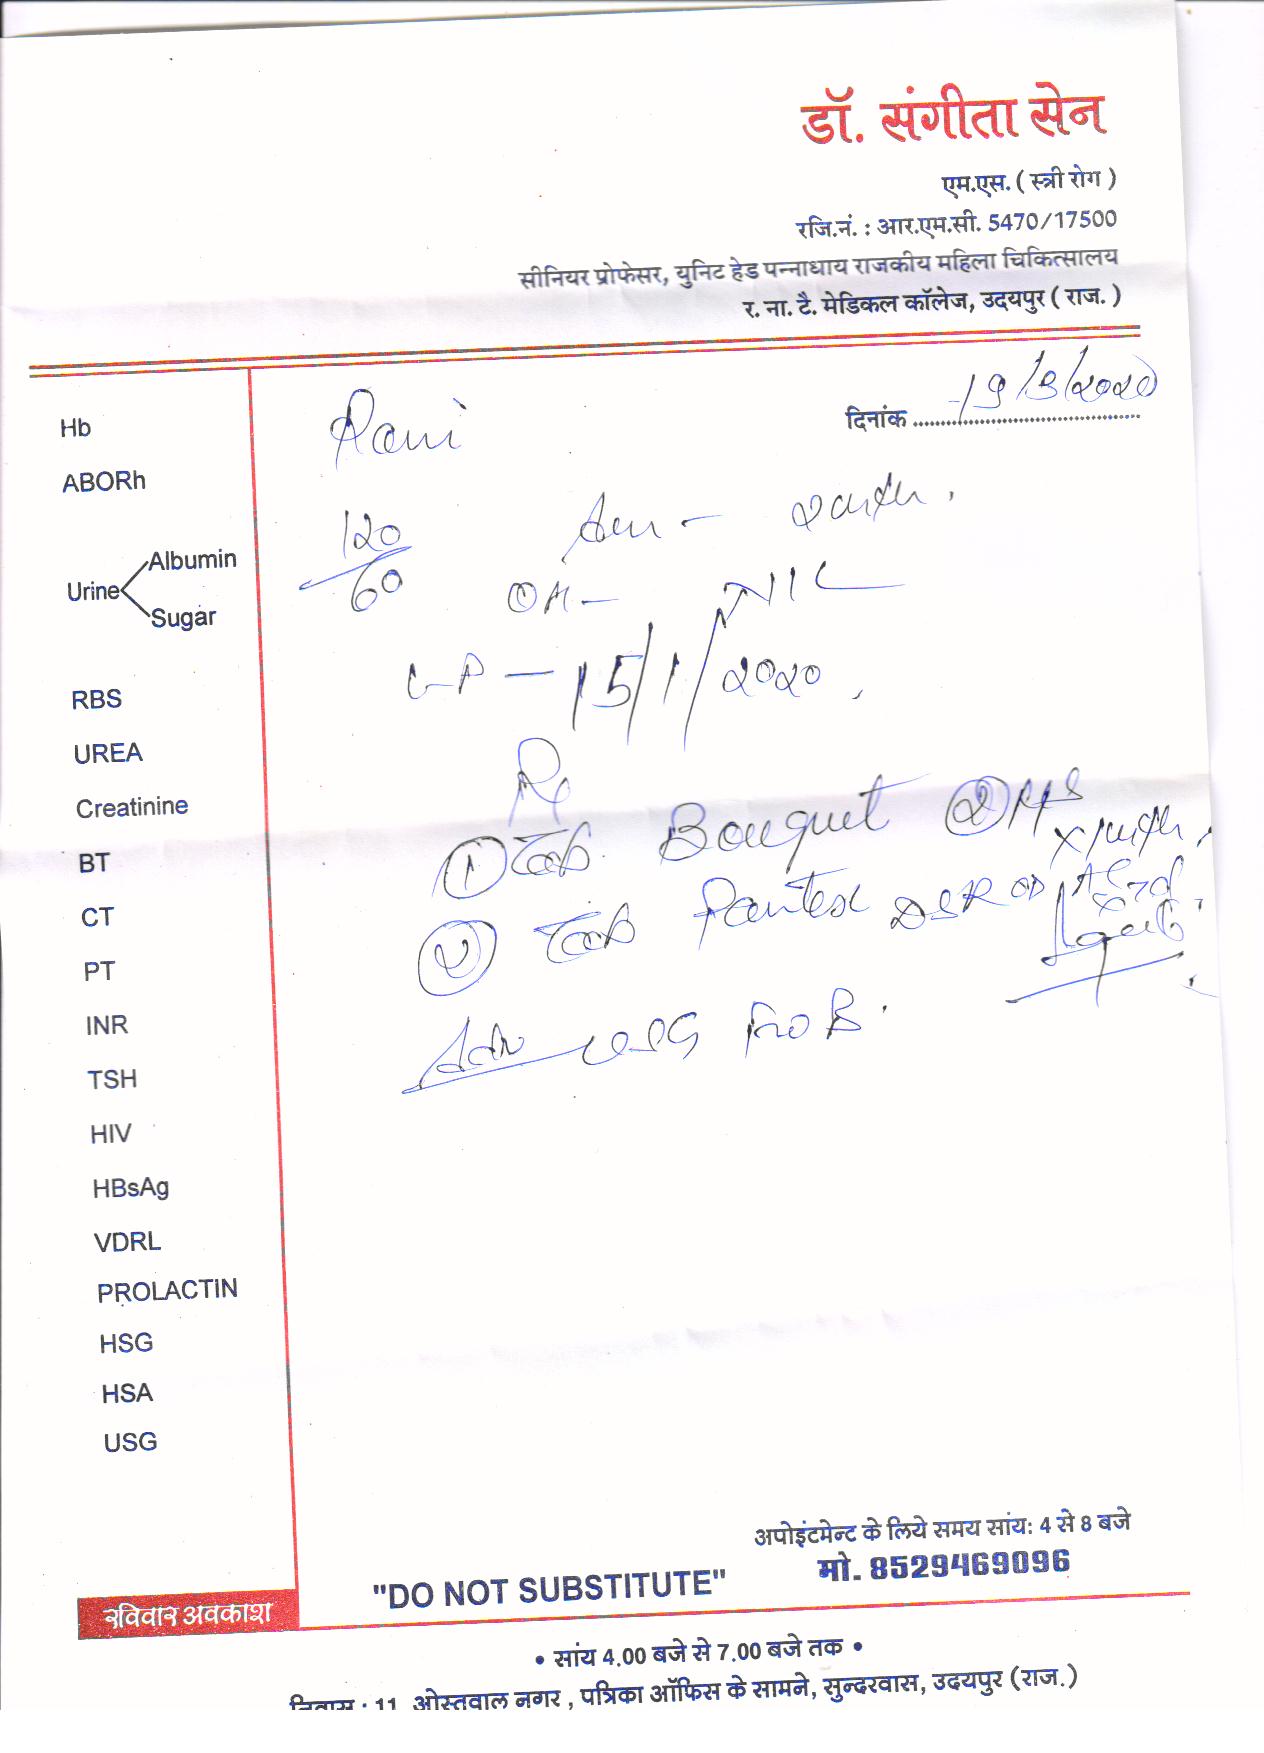 डॉ. संगीता सेन
एम.एस. ( स्त्री रोग )
रजि.नं. : आर.एम.सी. 5470/17500
सीनियर प्रोफेसर, युनिट हेड पन्नाधाय राजकीय महिला चिकित्सालय
र. ना. टै. मेडिकल कॉलेज, उदयपुर ( राज. )
दिनांक 19/3/2020
Hb
Rani
ABORh
120/60
Urine Albumin
Sugar
OH - NIL
LP - 15/1/2020
RBS
UREA
Rx
Creatinine
① Tab. Bouquet
BT
② Tab Pantex DSR OD
CT
PT
Adv USG
INR
TSH
HIV
HBsAg
VDRL
PROLACTIN
HSG
HSA
USG
अपोइंटमेन्ट के लिये समय सांय: 4 से 8 बजे
मो. 8529469096
"DO NOT SUBSTITUTE"
रविवार अवकाश
• सांय 4.00 बजे से 7.00 बजे तक •
निवास : 11, ओस्तवाल नगर , पत्रिका ऑफिस के सामने, सुन्दरवास, उदयपुर (राज.)